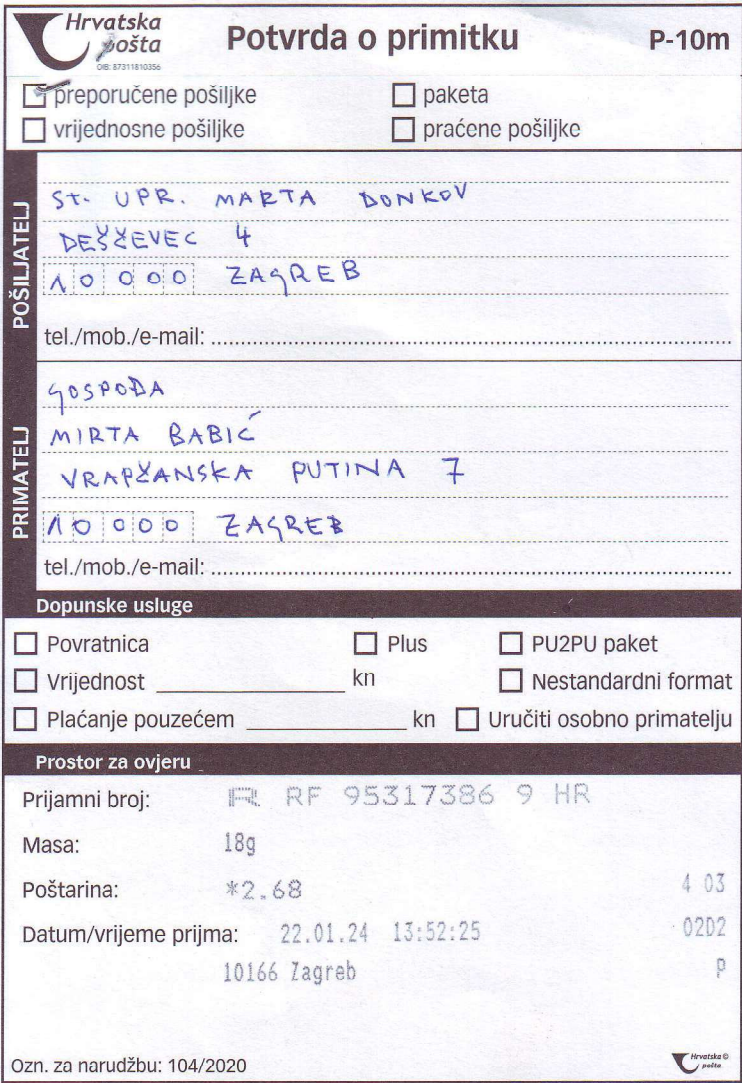 Hrvatska
pošta
OIB: 87311810356
Potvrda o primitku
P-10m
preporučene pošiljke
paketa
vrijednosne pošiljke
praćene pošiljke
POŠILJATELJ
ST. UPR. MARTA DONKOV
DEŠČEVEC 4
10000 ZAGREB
tel./mob./e-mail:
PRIMATELJ
GOSPOĐA
MIRTA BABIĆ
VRAPČANSKA PUTINA 7
10000 ZAGREB
tel./mob./e-mail:
Dopunske usluge
Povratnica
Plus
PU2PU paket
Vrijednost ____________ kn
Nestandardni format
Plaćanje pouzećem ____________ kn
Uručiti osobno primatelju
Prostor za ovjeru
Prijamni broj: R RF 95317386 9 HR
Masa: 18g
Poštarina: *2.68 4 03
Datum/vrijeme prijma: 22.01.24 13:52:25 02D2
10166 Zagreb P
Ozn. za narudžbu: 104/2020
Hrvatska ©
pošta